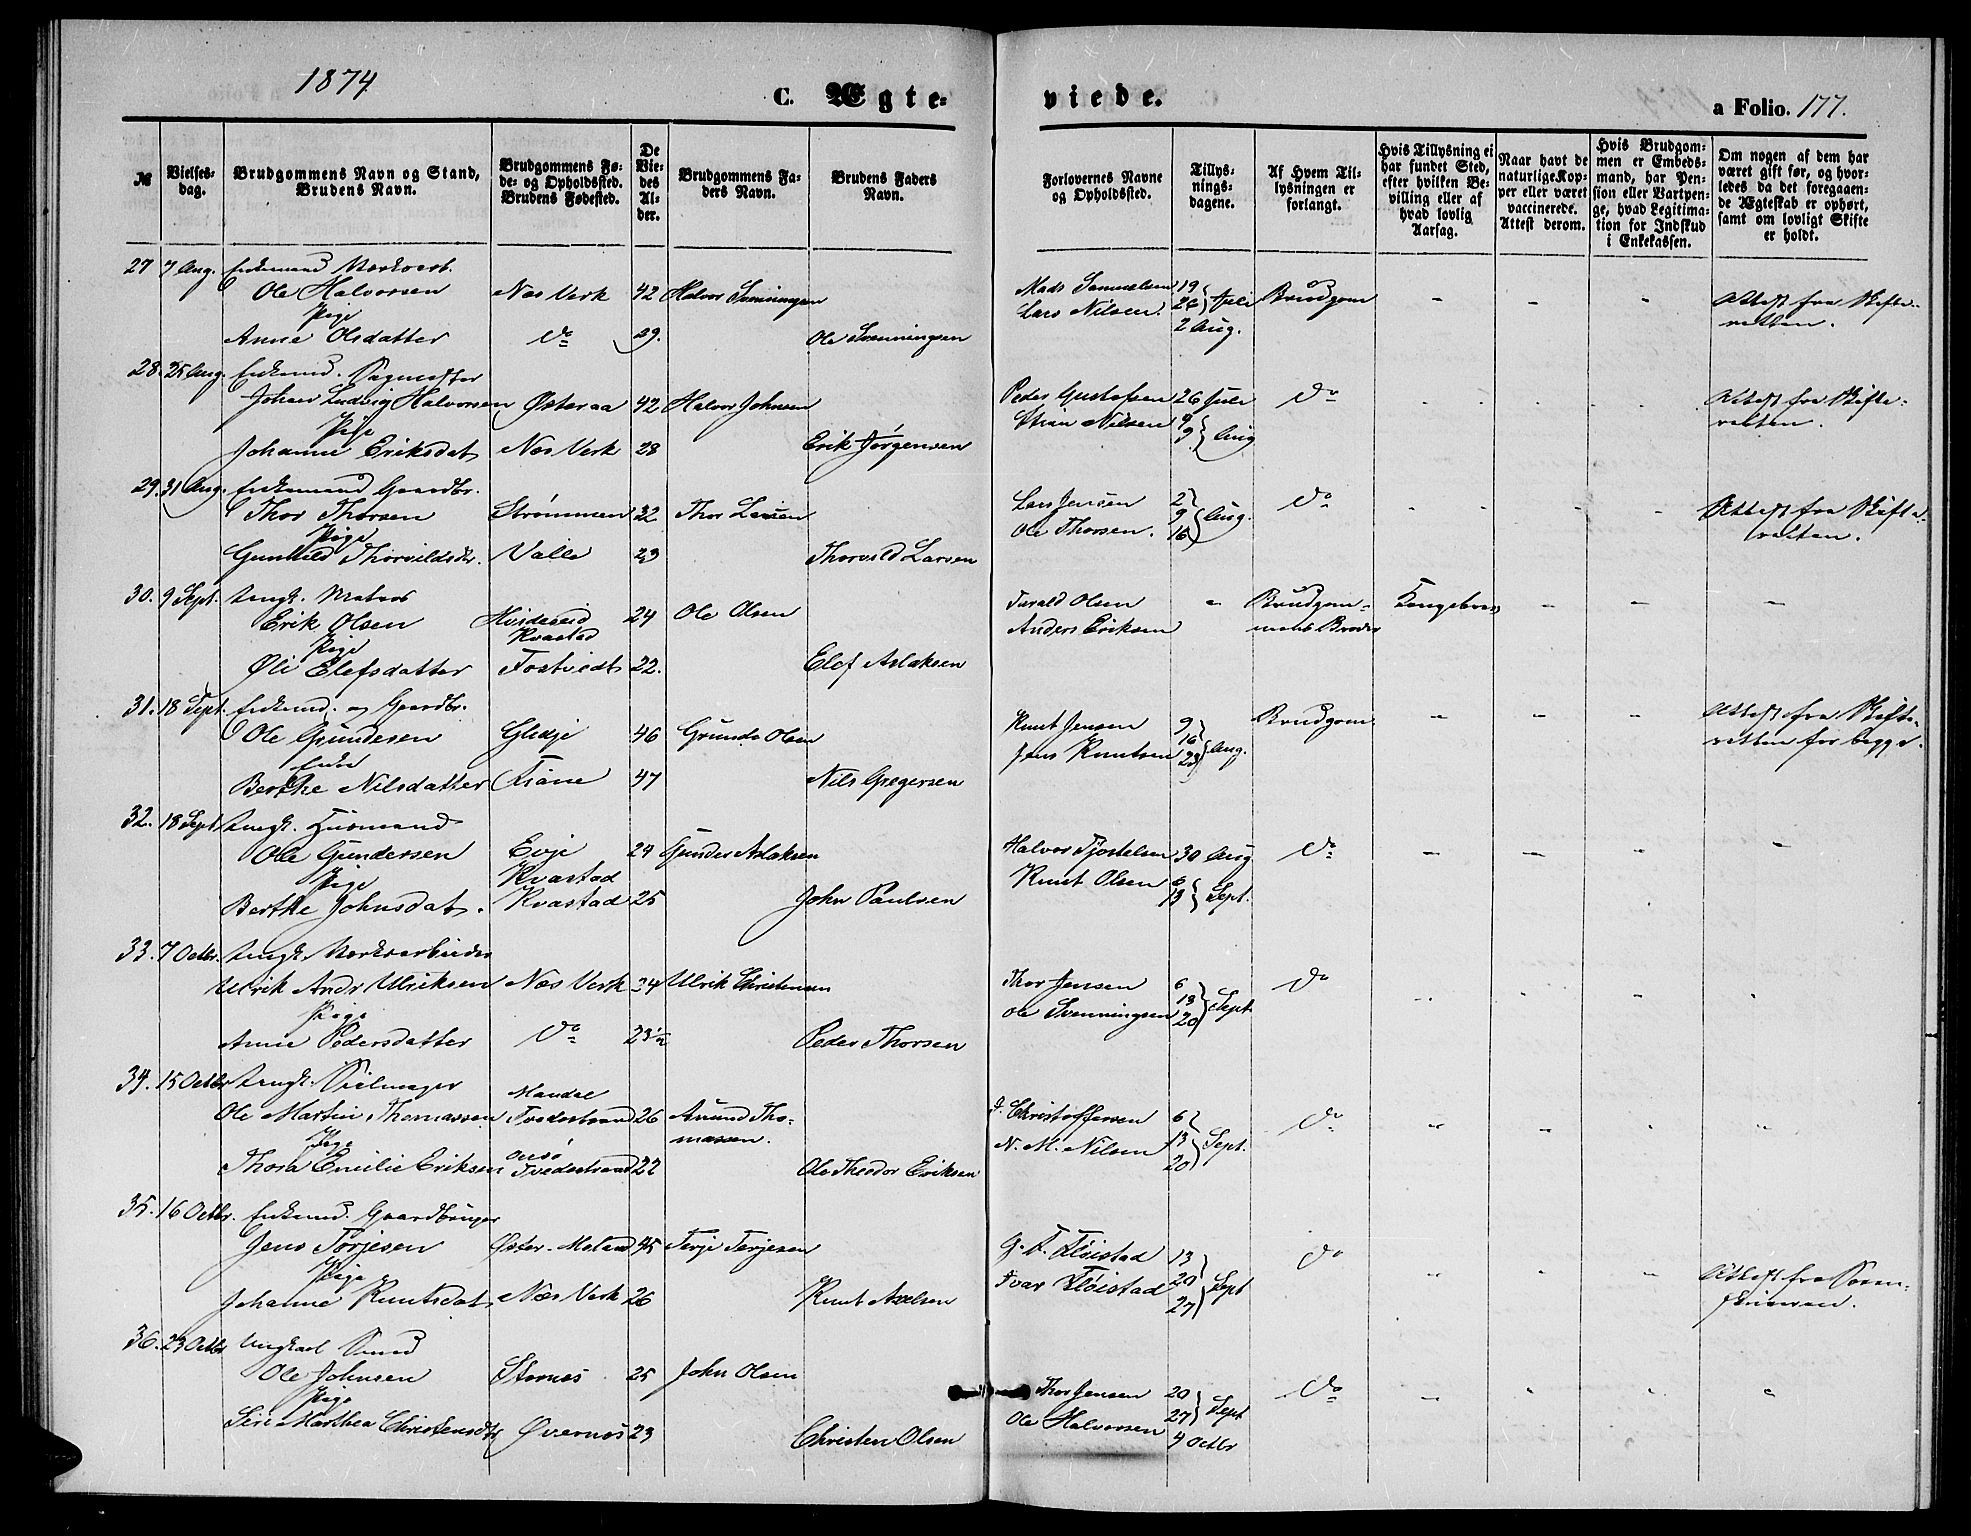 1874
C. Ægte-
viede.
a Folio. 177.
№
Vielses-
dag.
Brudgommens Navn og Stand,
Brudens Navn.
Brudgommens Fø-
de- og Opholdssted.
Brudens Fødested.
De
Vie-
des
Al-
der.
Brudgommens Fa-
ders Navn.
Brudens Faders
Navn.
Forlovernes Navne
og Opholdssted.
Tillys-
nings-
dagene.
Af Hvem Til-
lysningen er
forlangt.
Hvis Tillysning ei
har fundet Sted,
efter hvilken Be-
villing eller af
hvad lovlig
Aarsag.
Naar havt de
naturlige Kop-
per eller været
vaccinerede.
Attest derom.
Hvis Brudgom-
men er Embeds-
mand, har Pen-
sion eller Vartpen-
ge, hvad Legitima-
tion for Indskud
i Enkekassen.
Om nogen af dem har
været gift før, og hvor-
ledes da det foregaaen-
de Ægteskab er ophørt,
samt om lovligt Skifte
er holdt.
27 7 Aug. Enkemand
Ole Halvorsen Næs Verk 42 Halvor Svenningsen Mads Samuelsen 19
Pige Lars Nilsen. 26 Juli Brudgom - - - Attest fra Skifte-
Anne Olsdatter Do 29. Ole Svenningsen 2 Aug. retten.
28. 25 Aug. Enkemd. Sagmester
Johan Ludvig Halvorsen Østeraa 42 Halvor Johnsen Peder Gustafsen 26 Juli Do Attest fra Skifte-
Pige Stian Nilsen 9 Aug retten.
Johanne Eriksdat. Næs Verk 28 Erik Jørgensen
29. 31 Aug. Enkemand Gaardbr.
Thor Thorsen Strømmen 32 Thor Larsen Lars Jensen 2 Do Attest fra Skifte-
Pige Ole Thorsen. 9 Aug. retten.
Gunhild Thorvildsdtr. Valle 23 Thorvild Larsen 16
30. 9 Sept. Ungk. Matros
Erik Olsen Kvastad 24 Ole Olsen Tarald Olsen - Brudgom- Kongebrev - - -
Pige Anders Eriksen mens Broder
Øli Elefsdatter Fostvedt 22. Elef Aslaksen
31. 18 Sept. Enkemd. og Gaardbr.
Ole Gundersen Gledje 46 Gunder Olsen Knut Jensen 9 Brudgom - - - Attest fra Skifte-
Enke Jens Knutsen 16 Aug. retten for begge.
Berthe Nilsdatter Fiane 47 Nils Gregersen 23
32. 18 Sept Ungk. Husmand
Ole Gundersen Evje 24 Gunder Aslaksen Halvor Tjostelsen 30 Aug Do - - - -
Pige Kvastad Knut Olsen 6
Berthe Johnsdat. Kvastad 25 John Paulsen 13 Sept.
33. 7 Octbr. Ungk. Værksarbeider
Ulrik Andr Ulriksen Næs Verk 24 Ulrik Christensen Thor Jensen 6 Do
Pige Ole Svenningsen 13 Sept
Anne Pedersdatter Do 23½ Peder Thorsen 20
34. 15 Octbr Ungk. Seilmager
Mandal
Ole Martin Thomassen Tvedestrand 26 Amund Tho- J. Christoffersen 6 Do
Pige massen. N. M. Nilsen 13 Sept.
Thora Emilie Eriksen Tvedestrand 22 Ole Theodor Eriksen 20
35. 16 Octbr. Enkemd. Gaardbruger
Jens Terjesen 45 Terje Terjesen G. T. Fløistad 13 Do
Pige Ivar Fløistad 20 Sept Attest fra Soren-
Johanne Knutsdat. Næs Verk 26 Knut Axelsen 27 skriveren.
36. 23 Octbr Ungkarl Smed
Ole Johnsen Stornæs 25 John Olsen Thor Jensen 20 Do
Pige Ole Halvorsen 27 Sept
Siri Marthea Christensdtr Øvernæs 23 Christen Olsen 4 Octbr